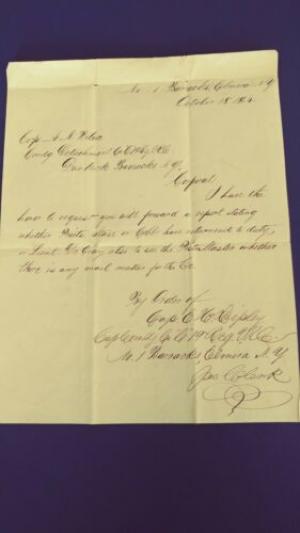 No. 1 Barracks, Elmira N.Y.
October 18. 1864.
Corp. A. J.
Comdg Detachment Co. 19th V.R.C.
Barracks N.Y.
Corporal
I have the
honor to request you will forward a report stating
whether have returned to duty,
or Lieut. also to see the Post Master whether
there is any mail matter for the Co.
By Order of
Capt. E. C. Ripley
Comdg Co. 19th Reg. V.R.C.
No. 1 Barracks Elmira N.Y.
Clark